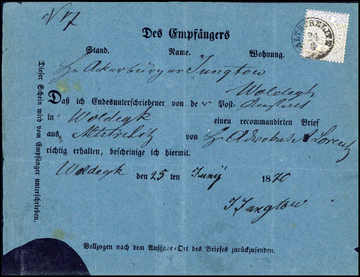 N 17
Des Empfängers
Stand. Name. Wohnung.
Hr Ackerbürger Jungtow
Woldegk
ALTSTRELITZ
24
6
Daß ich Endesunterschriebener von der Post-
in Woldegk einen recommandirten Brief
aus Altstrelitz von Hr Advocat Lorentz
richtig erhalten, bescheinige ich hiermit.
Woldegk den 25 ten Junij 1870
J Jungtow
Vollzogen nach dem Aufgabe-Ort des Briefes zurückzusenden.
Dieser Schein wird vom Empfänger unterschrieben.